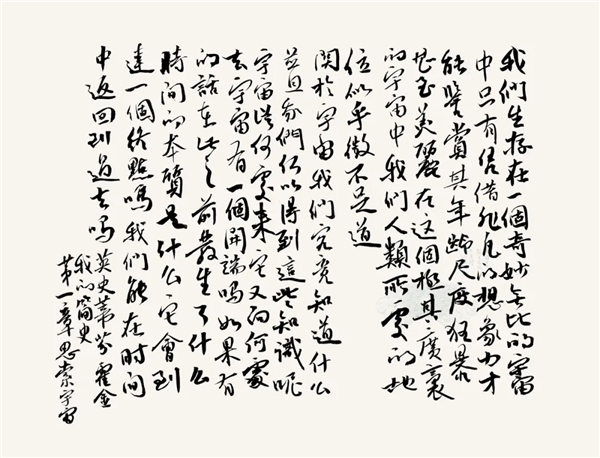 我们生存在一個奇妙无比的宇宙
中只有凭借非凡的想象力才
能鉴赏其年龄尺度狂暴
甚至美麗在这個極其廣袤
的宇宙中我们人類所處的地
位似乎微不足道
関於宇宙我们究竟知道什么
並且我們何以得到這些知識呢
宇宙從何處来它又向何處
去宇宙有一個開端嗎如果有
的話在此之前發生了什么
時間的本質是什么它會到
達一個終點嗎我们能在时间
中返回到過去嗎
英史蒂芬霍金
我的簡史
第一章思索宇宙